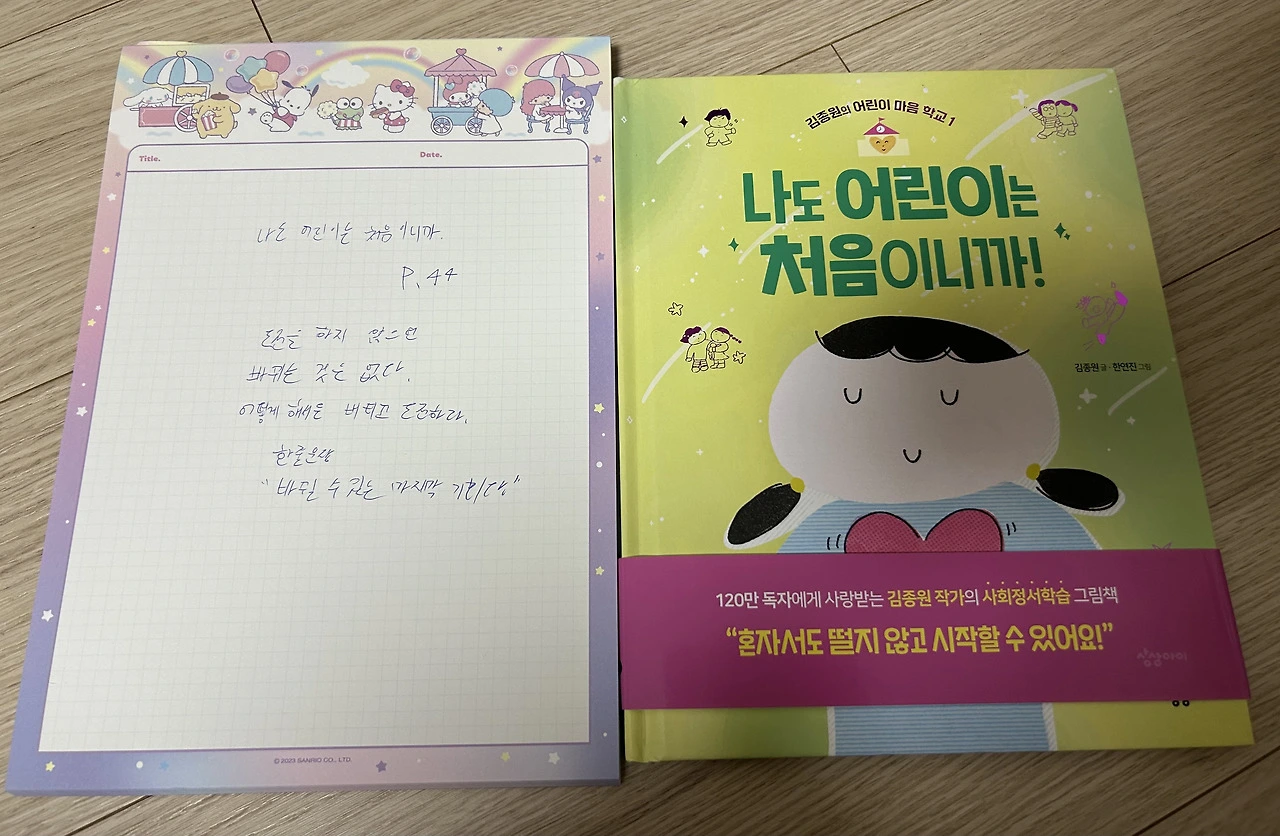 Title.
Date.
나도 어린이는 처음이니까.
P. 44
도전을 하지 않으면
바뀌는 것은 없다.
어떻게 해서든 버티고 도전하라.
한줄요약
"바뀔 수 있는 마지막 기회다"
© 2023 SANRIO CO., LTD.
김종원의 어린이 마음 학교 1
나도 어린이는
처음이니까!
김종원 글·한연진 그림
120만 독자에게 사랑받는 김종원 작가의 사회정서학습 그림책
"혼자서도 떨지 않고 시작할 수 있어요!"
상상아이